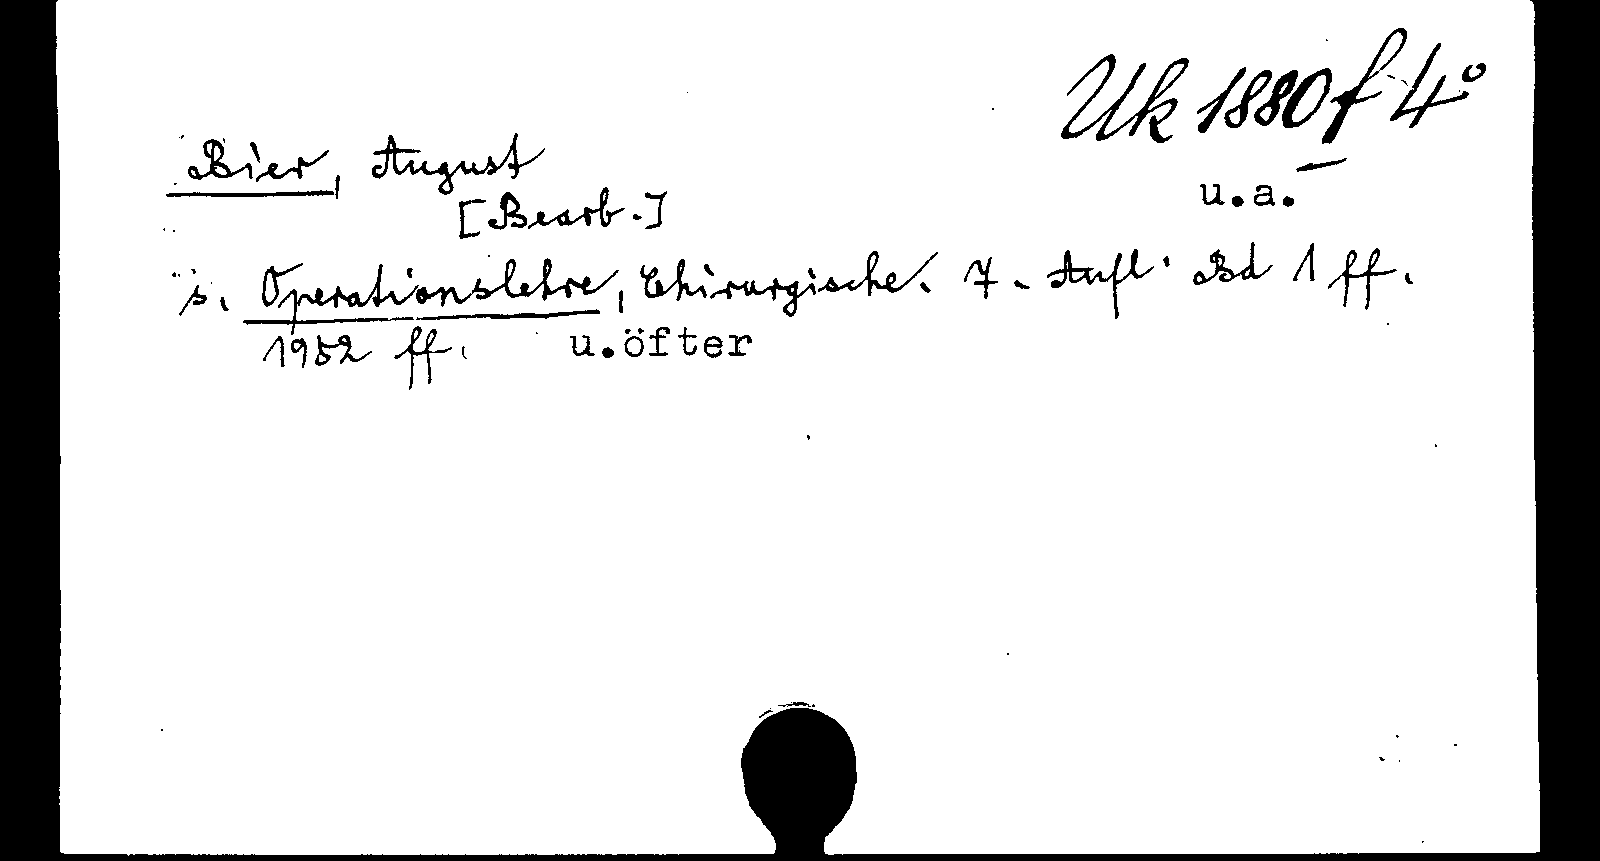 Uk 1880 f 4°
Bier, August
u.a.
[Bearb.]
s. Operationslehre, Chirurgische. 7. Aufl. Bd 1 ff.
1952 ff. u.öfter